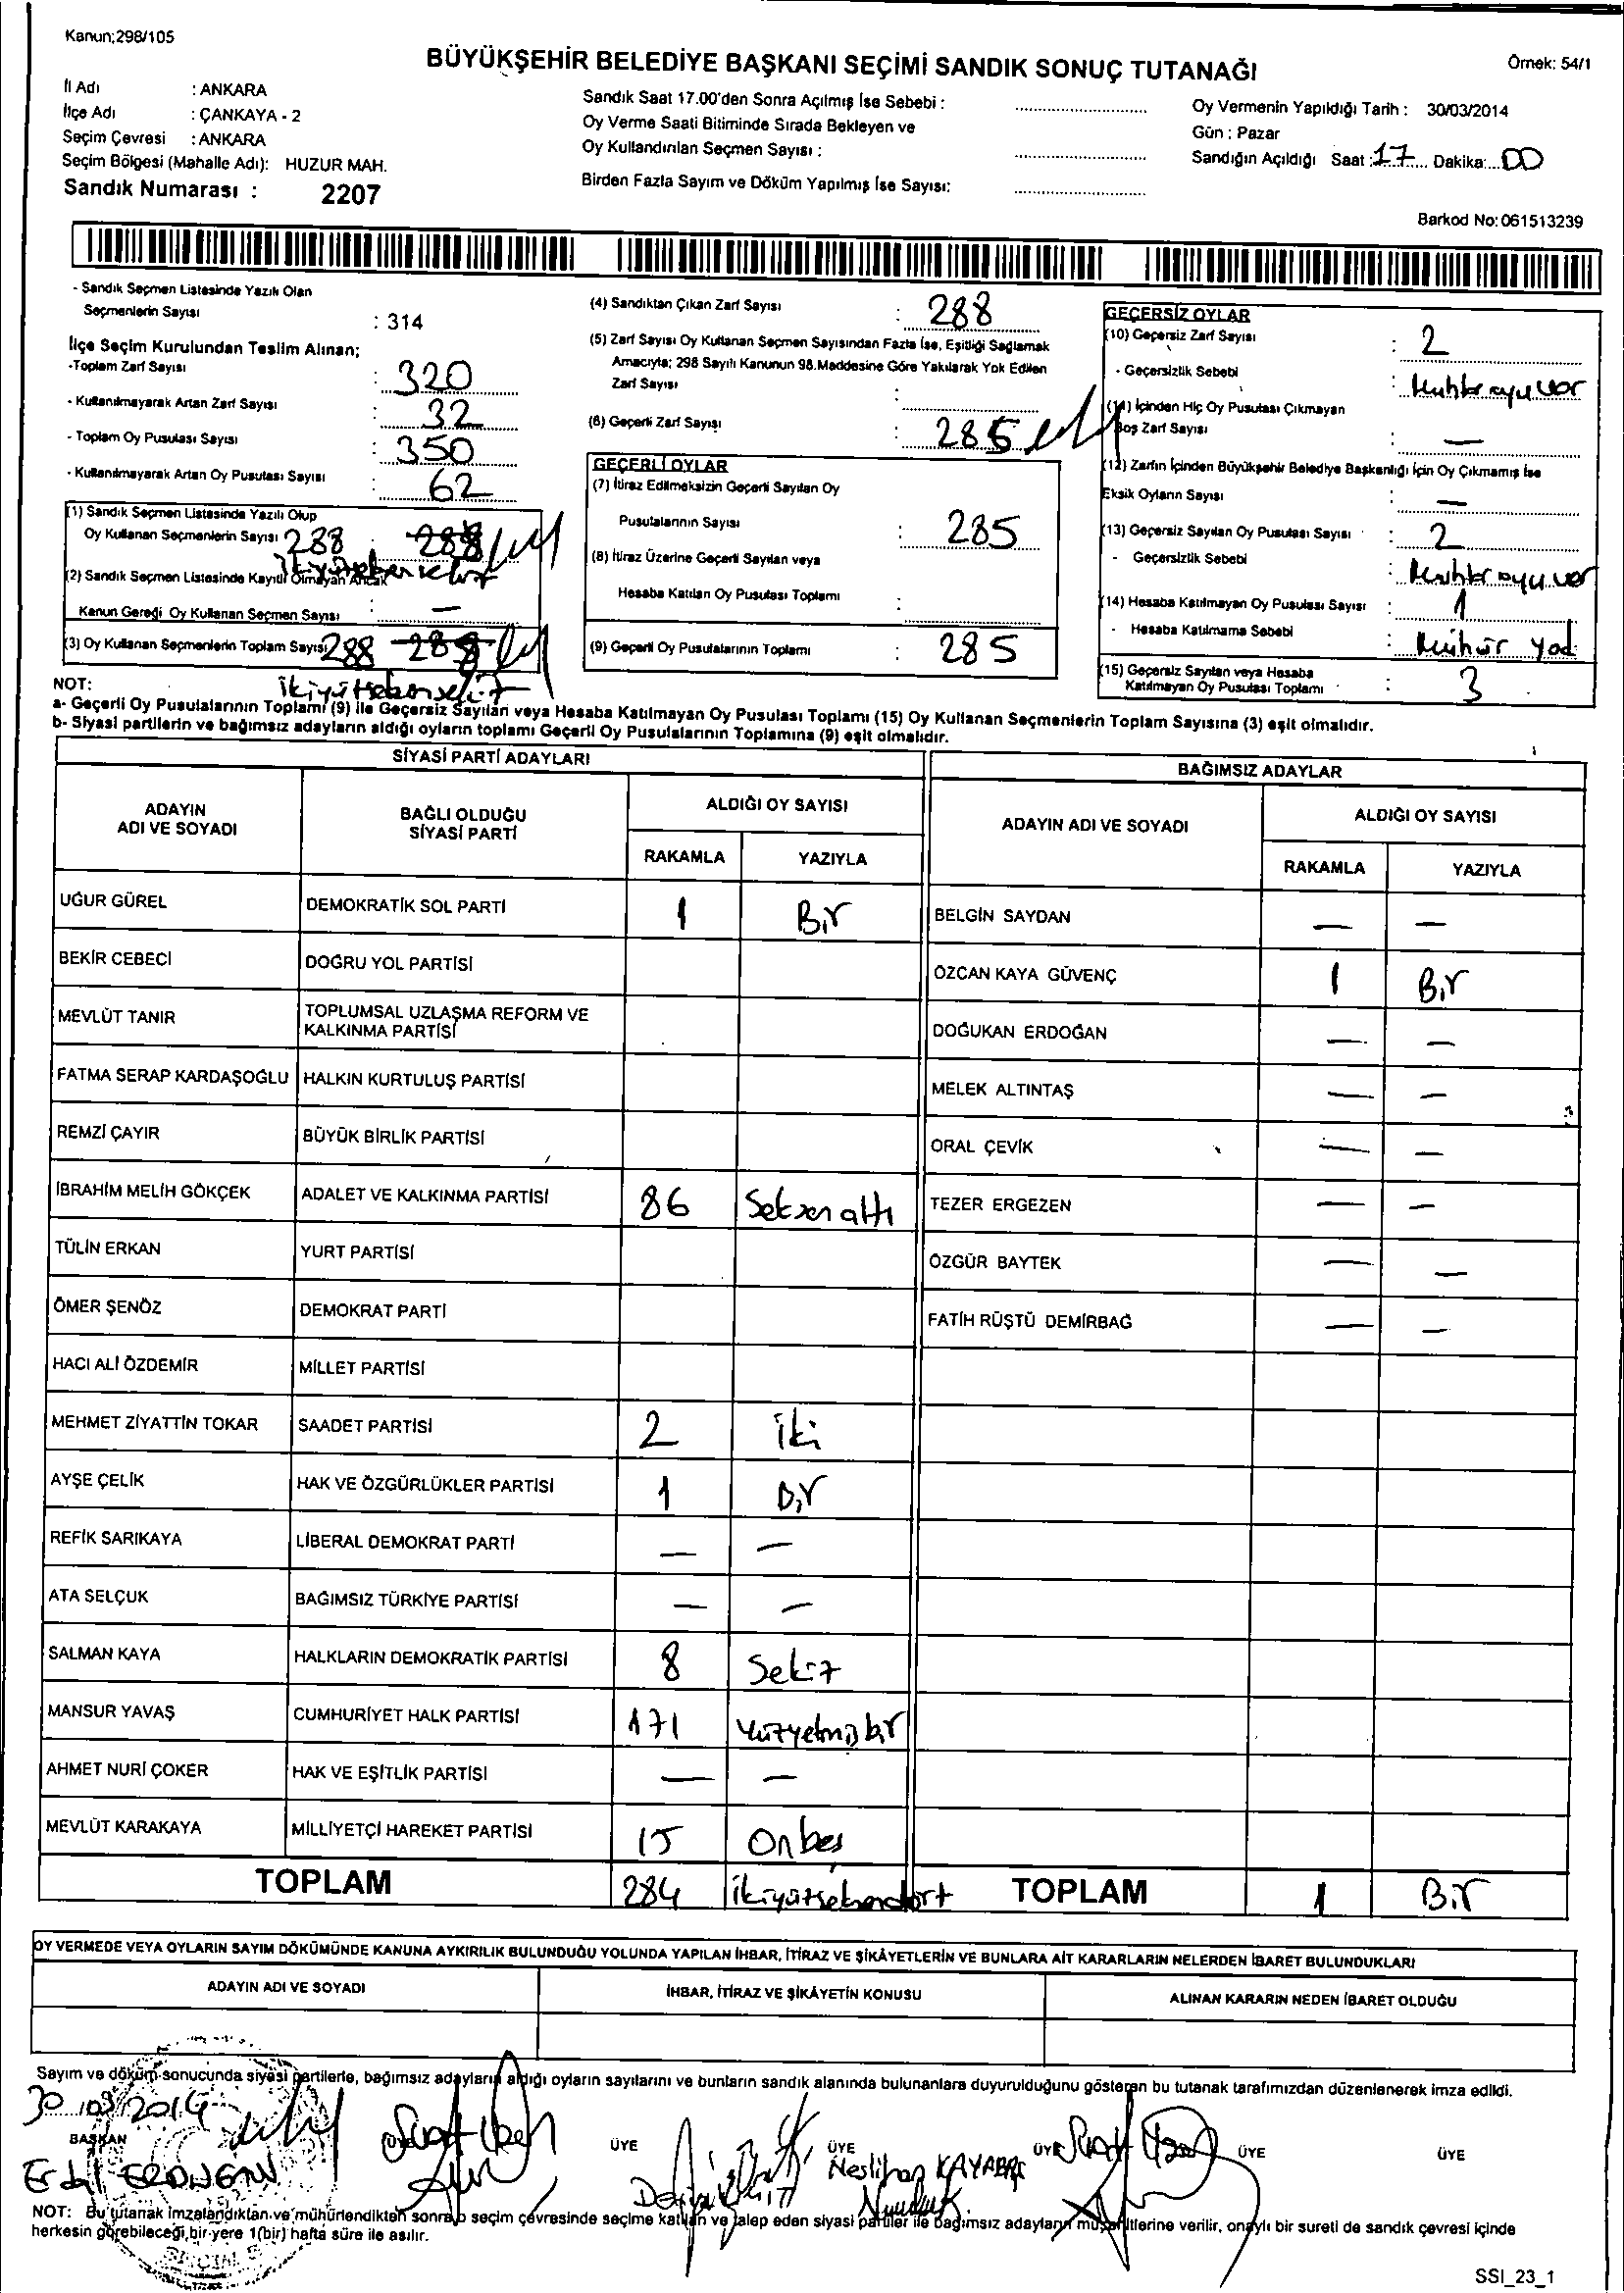 Kanun;298/105
BÜYÜKŞEHİR BELEDİYE BAŞKANI SEÇİMİ SANDIK SONUÇ TUTANAĞI
Örnek: 54/1
İl Adı : ANKARA
İlçe Adı : ÇANKAYA - 2
Seçim Çevresi : ANKARA
Seçim Bölgesi (Mahalle Adı): HUZUR MAH.
Sandık Numarası : 2207
Sandık Saat 17.00'den Sonra Açılmış İse Sebebi :
Oy Verme Saati Bitiminde Sırada Bekleyen ve
Oy Kullandırılan Seçmen Sayısı :
Birden Fazla Sayım ve Döküm Yapılmış İse Sayısı:
Oy Vermenin Yapıldığı Tarih : 30/03/2014
Gün : Pazar
Sandığın Açıldığı Saat : 17 Dakika: 00
Barkod No: 061513239
- Sandık Seçmen Listesinde Yazılı Olan
Seçmenlerin Sayısı : 314
İlçe Seçim Kurulundan Teslim Alınan;
-Toplam Zarf Sayısı : 320
- Kullanılmayarak Artan Zarf Sayısı : 32
- Toplam Oy Pusulası Sayısı : 350
- Kullanılmayarak Artan Oy Pusulası Sayısı : 62
(1) Sandık Seçmen Listesinde Yazılı Olup
Oy Kullanan Seçmenlerin Sayısı 288 288
(2) Sandık Seçmen Listesinde Kayıtlı Olmayan Ancak
Kanun Gereği Oy Kullanan Seçmen Sayısı : —
(3) Oy Kullanan Seçmenlerin Toplam Sayısı 288 288
ikiyüzseksensekiz
(4) Sandıktan Çıkan Zarf Sayısı : 288
(5) Zarf Sayısı Oy Kullanan Seçmen Sayısından Fazla İse, Eşitliği Sağlamak
Amacıyla; 298 Sayılı Kanunun 98.Maddesine Göre Yakılarak Yok Edilen
Zarf Sayısı :
(6) Geçerli Zarf Sayısı : 285
GEÇERLİ OYLAR
(7) İtiraz Edilmeksizin Geçerli Sayılan Oy
Pusulalarının Sayısı : 285
(8) İtiraz Üzerine Geçerli Sayılan veya
Hesaba Katılan Oy Pusulası Toplamı :
(9) Geçerli Oy Pusulalarının Toplamı : 285
GEÇERSİZ OYLAR
(10) Geçersiz Zarf Sayısı : 2
- Geçersizlik Sebebi :
(11) İçinden Hiç Oy Pusulası Çıkmayan
Boş Zarf Sayısı : —
(12) Zarfın İçinden Büyükşehir Belediye Başkanlığı İçin Oy Çıkmamış İse
Eksik Oyların Sayısı : —
(13) Geçersiz Sayılan Oy Pusulası Sayısı : 2
- Geçersizlik Sebebi :
(14) Hesaba Katılmayan Oy Pusulası Sayısı : 1
- Hesaba Katılmama Sebebi : Mühür yok
(15) Geçersiz Sayılan veya Hesaba
Katılmayan Oy Pusulası Toplamı : 3
NOT:
a- Geçerli Oy Pusulalarının Toplamı (9) ile Geçersiz Sayılan veya Hesaba Katılmayan Oy Pusulası Toplamı (15) Oy Kullanan Seçmenlerin Toplam Sayısına (3) eşit olmalıdır.
b- Siyasi partilerin ve bağımsız adayların aldığı oyların toplamı Geçerli Oy Pusulalarının Toplamına (9) eşit olmalıdır.
SİYASİ PARTİ ADAYLARI
ADAYIN ADI VE SOYADI
BAĞLI OLDUĞU SİYASİ PARTİ
ALDIĞI OY SAYISI
RAKAMLA YAZIYLA
UĞUR GÜREL DEMOKRATİK SOL PARTİ 1 Bir
BEKİR CEBECİ DOĞRU YOL PARTİSİ
MEVLÜT TANIR TOPLUMSAL UZLAŞMA REFORM VE
KALKINMA PARTİSİ
FATMA SERAP KARDAŞOĞLU HALKIN KURTULUŞ PARTİSİ
REMZİ ÇAYIR BÜYÜK BİRLİK PARTİSİ
İBRAHİM MELİH GÖKÇEK ADALET VE KALKINMA PARTİSİ 86 Seksenaltı
TÜLİN ERKAN YURT PARTİSİ
ÖMER ŞENÖZ DEMOKRAT PARTİ
HACI ALİ ÖZDEMİR MİLLET PARTİSİ
MEHMET ZİYATTİN TOKAR SAADET PARTİSİ 2 iki
AYŞE ÇELİK HAK VE ÖZGÜRLÜKLER PARTİSİ 1 Bir
REFİK SARIKAYA LİBERAL DEMOKRAT PARTİ — —
ATA SELÇUK BAĞIMSIZ TÜRKİYE PARTİSİ — —
SALMAN KAYA HALKLARIN DEMOKRATİK PARTİSİ 8 Sekiz
MANSUR YAVAŞ CUMHURİYET HALK PARTİSİ 171 Yüzyetmişbir
AHMET NURİ ÇOKER HAK VE EŞİTLİK PARTİSİ — —
MEVLÜT KARAKAYA MİLLİYETÇİ HAREKET PARTİSİ 15 Onbeş
TOPLAM 284 ikiyüzseksendört
BAĞIMSIZ ADAYLAR
ADAYIN ADI VE SOYADI
ALDIĞI OY SAYISI
RAKAMLA YAZIYLA
BELGİN SAYDAN — —
ÖZCAN KAYA GÜVENÇ 1 Bir
DOĞUKAN ERDOĞAN — —
MELEK ALTINTAŞ — —
ORAL ÇEVİK — —
TEZER ERGEZEN — —
ÖZGÜR BAYTEK — —
FATİH RÜŞTÜ DEMİRBAĞ — —
TOPLAM 1 Bir
OY VERMEDE VEYA OYLARIN SAYIM DÖKÜMÜNDE KANUNA AYKIRILIK BULUNDUĞU YOLUNDA YAPILAN İHBAR, İTİRAZ VE ŞİKÂYETLERİN VE BUNLARA AİT KARARLARIN NELERDEN İBARET BULUNDUKLARI
ADAYIN ADI VE SOYADI İHBAR, İTİRAZ VE ŞİKÂYETİN KONUSU ALINAN KARARIN NEDEN İBARET OLDUĞU
Sayım ve döküm sonucunda siyasi partilerle, bağımsız adayların aldığı oyların sayılarını ve bunların sandık alanında bulunanlara duyurulduğunu gösteren bu tutanak tarafımızdan düzenlenerek imza edildi.
30/03/2014
BAŞKAN ÜYE ÜYE ÜYE ÜYE ÜYE ÜYE
Neslihan
NOT: Bu tutanak imzalandıktan ve mühürlendikten sonra o seçim çevresinde seçime katılan ve talep eden siyasi partiler ile bağımsız adayların müşahitlerine verilir, onaylı bir sureti de sandık çevresi içinde
herkesin görebileceği bir yere 1(bir) hafta süre ile asılır.
SSI_23_1